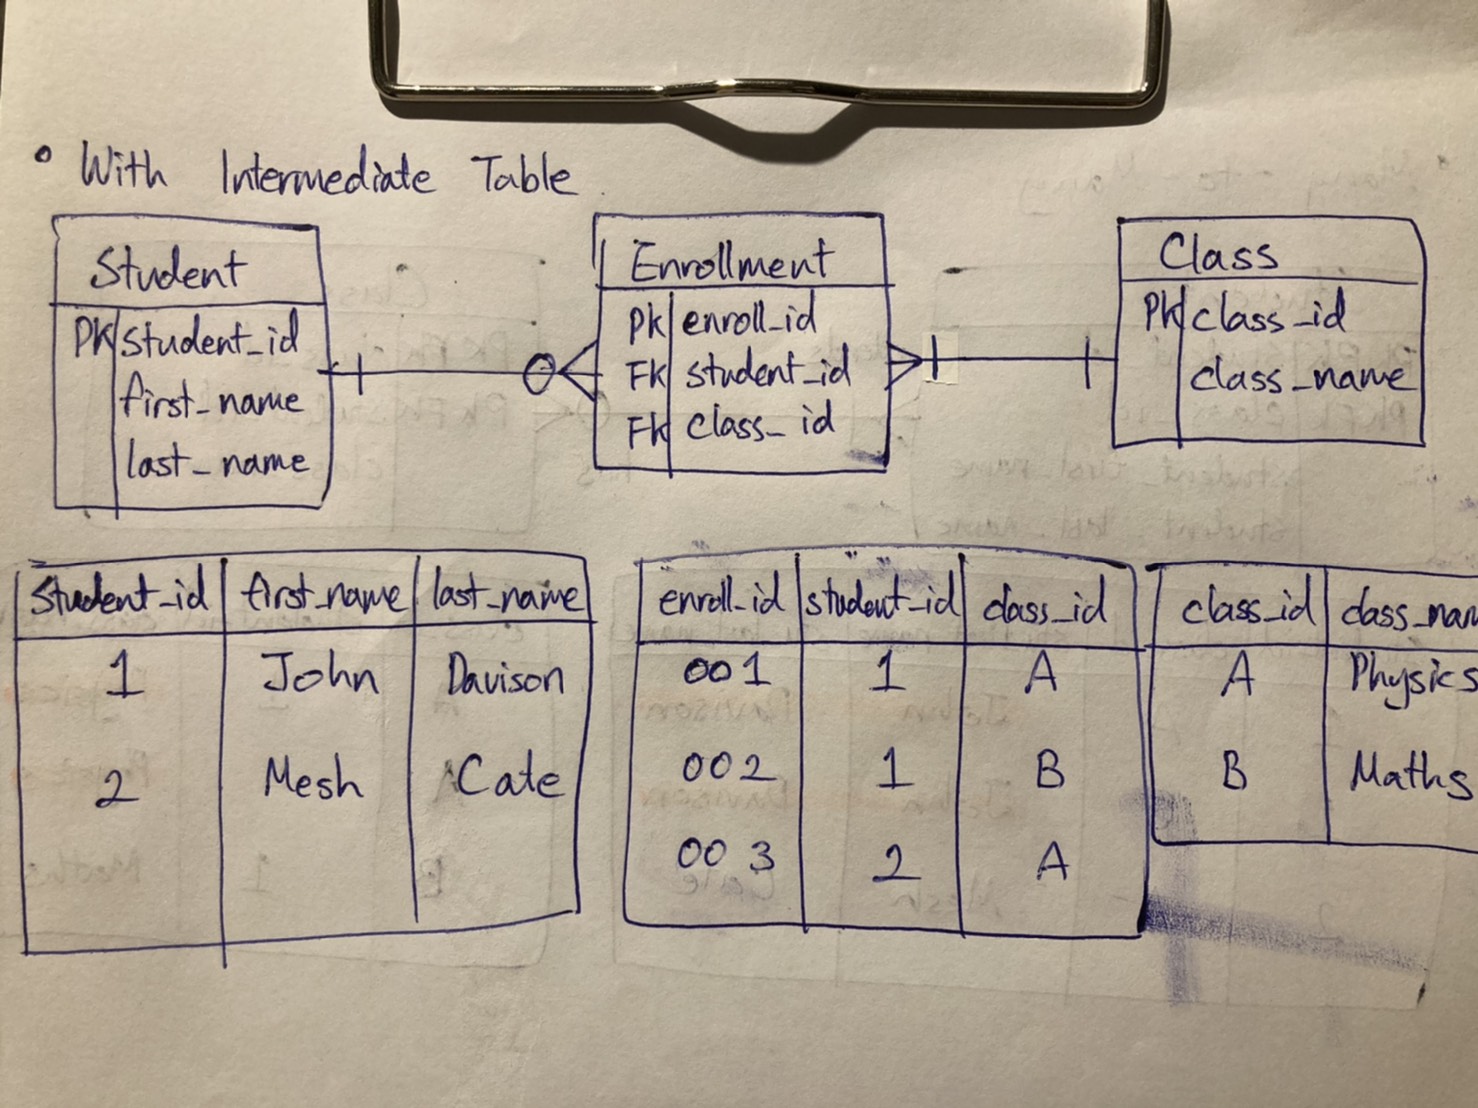 With Intermediate Table
Student
PK student_id
first_name
last_name
Enrollment
PK enroll_id
FK student_id
FK class_id
Class
PK class_id
class_name
Student_id first_name last_name
1 John Davison
2 Mesh Cate
enroll_id student_id class_id
001 1 A
002 1 B
003 2 A
class_id class_nam
A Physics
B Maths